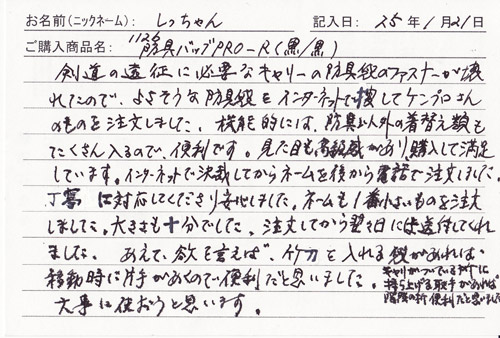 お名前(ニックネーム): しっちゃん 記入日: 25年1月21日
ご購入商品名: 1126 防具バッグPRO-R(黒/黒)
剣道の遠征に必要なキャリーの防具袋のファスナーが壊
れたので、よさそうな防具袋をインターネットで捜してケンプロさん
のものを注文しました。機能的には、防具以外の着替え類も
たくさん入るので、便利です。見た目も高級感があり、購入して満足
しています。インターネットで決裁してからネームを後から電話で注文しました。
丁寧に対応してくださり安心しました。ネームも1番小さいものを注文
しました。大きさも十分でした。注文してから翌々日には送付してくれ
ました。あえて、欲を言えば、竹刀を入れる袋があれば
移動時に片手があくので便利だと思いました。
キャリーがついている外に
持ち上げる取手があれば
階段の折便利だと思いました
大事に使おうと思います。